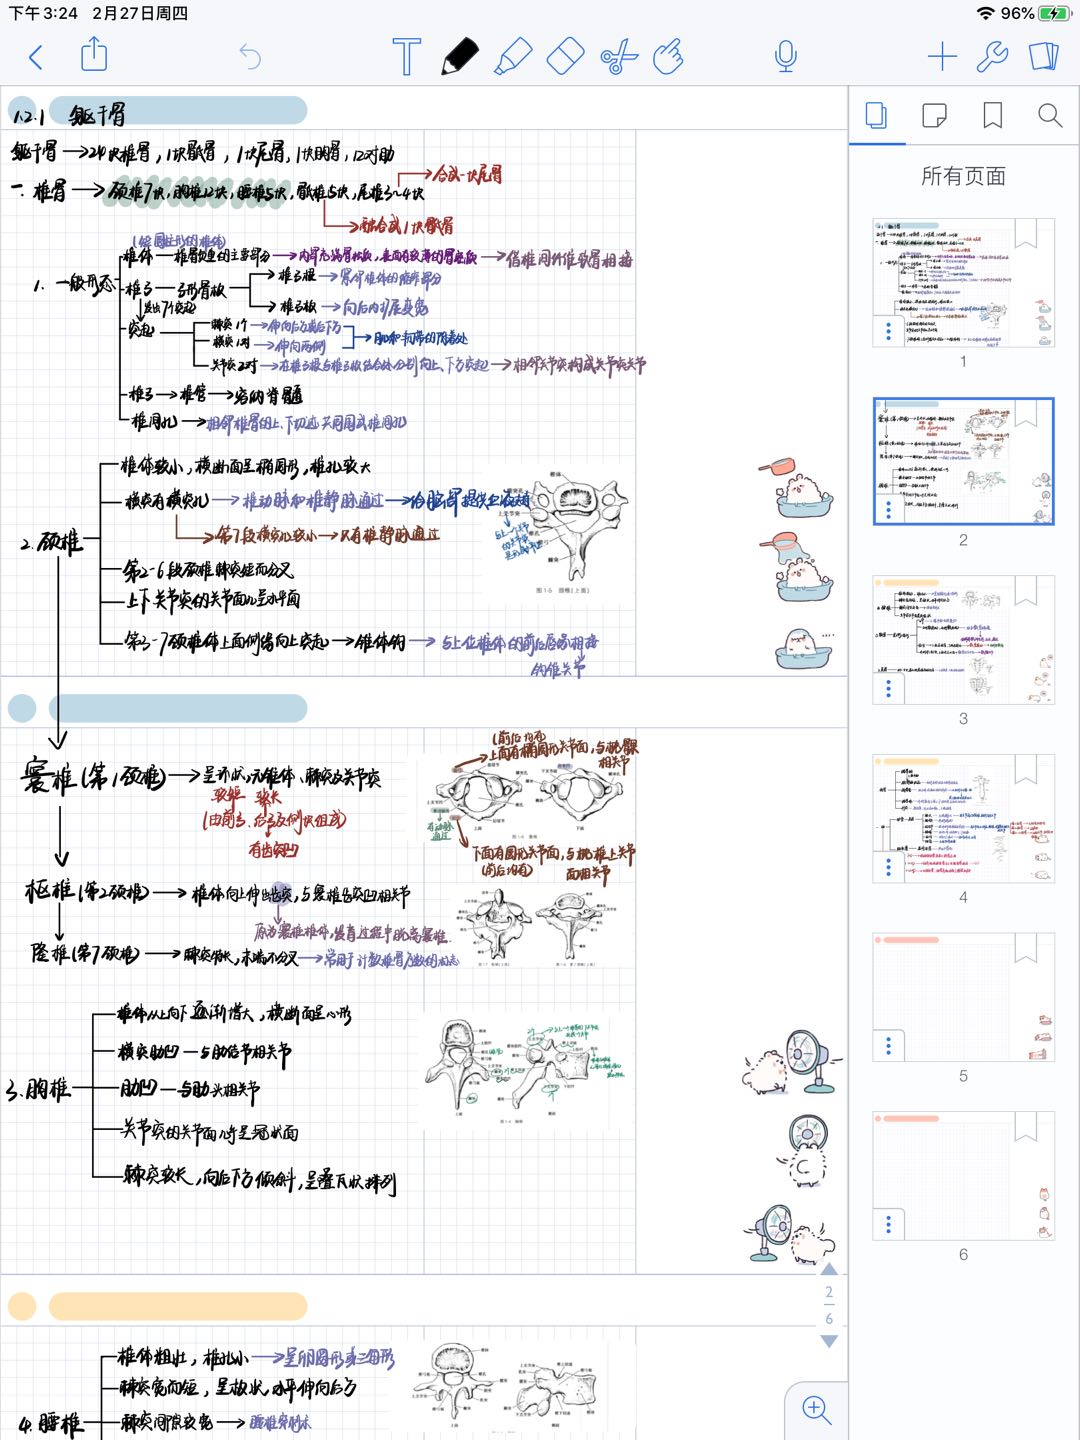 下午3:24 2月27日周四
96%
1.2.1 躯干骨
躯干骨→24块椎骨，1块骶骨，1块尾骨，1块胸骨，12对肋
一.椎骨→颈椎7块，胸椎12块，腰椎5块，骶椎5块，尾椎3~4块
→合成一块尾骨
→融合成1块骶骨
(短圆柱形的椎体)
1. 一般形态
椎体—椎骨负重的主要部分→内部充满骨松质，表面有较薄的骨密质→借椎间纤维软骨相接
椎弓—弓形骨板
→椎弓根→紧邻椎体的缩窄部分
→椎弓板→向后内扩展变宽
发出7个突起
突起
棘突1个→伸向后方或后下方
横突1对→伸向两侧
→肌肉和韧带的附着处
关节突2对→在椎弓根与椎弓板结合处分别向上、下方突起→相邻关节突构成关节突关节
椎孔→椎管→容纳脊髓
椎间孔→相邻椎骨的上、下切迹共同围成椎间孔
2.颈椎
椎体较小，横断面呈椭圆形，椎孔较大
横突有横突孔→椎动脉和椎静脉通过
→第7段横突孔较小→只有椎静脉通过
第2-6段颈椎棘突短而分叉
上下关节突的关节面几呈水平面
第3-7颈椎体上面侧缘向上突起→椎体钩→与上位椎体的前后唇缘相接
钩椎关节
图1-5 颈椎(上面)
寰椎(第1颈椎)→呈环状，无椎体、棘突及关节突
较短 较长
(由前弓、后弓及侧块组成)
有齿突凹
(前后均有)
上面有椭圆形关节面，与枕骨髁
相关节
有动脉
通过
下面有圆形关节面，与枢椎上关节
(前后均有) 面相关节
枢椎(第2颈椎)→椎体向上伸出齿突，与寰椎齿突凹相关节
原为寰椎椎体，发育过程中脱离寰椎
隆椎(第7颈椎)→棘突特长，末端不分叉→常用于计数椎骨序数的标志
3.胸椎
椎体从上向下逐渐增大，横断面呈心形
横突肋凹—与肋结节相关节
肋凹—与肋头相关节
关节突的关节面几乎呈冠状面
棘突较长，向后下方倾斜，呈叠瓦状排列
4.腰椎
椎体粗壮，椎孔小→呈卵圆形或三角形
棘突宽而短，呈板状，水平伸向后方
棘突间隙较宽→腰椎穿刺术
2
6
所有页面
1
2
3
4
5
6